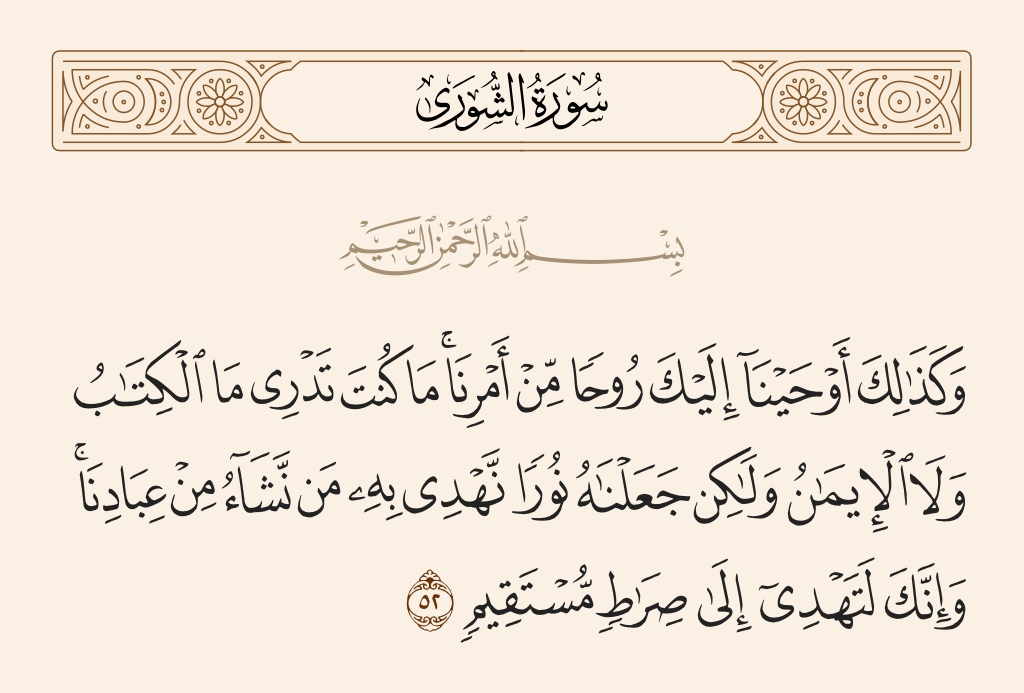 سُورَةُ الشُّورَىٰ
بِسْمِ ٱللَّهِ ٱلرَّحْمَٰنِ ٱلرَّحِيمِ
وَكَذَٰلِكَ أَوْحَيْنَآ إِلَيْكَ رُوحًا مِّنْ أَمْرِنَا ۚ مَا كُنتَ تَدْرِى مَا ٱلْكِتَٰبُ
وَلَا ٱلْإِيمَٰنُ وَلَٰكِن جَعَلْنَٰهُ نُورًا نَّهْدِى بِهِۦ مَن نَّشَآءُ مِنْ عِبَادِنَا ۚ
وَإِنَّكَ لَتَهْدِىٓ إِلَىٰ صِرَٰطٍ مُّسْتَقِيمٍ ٥٢